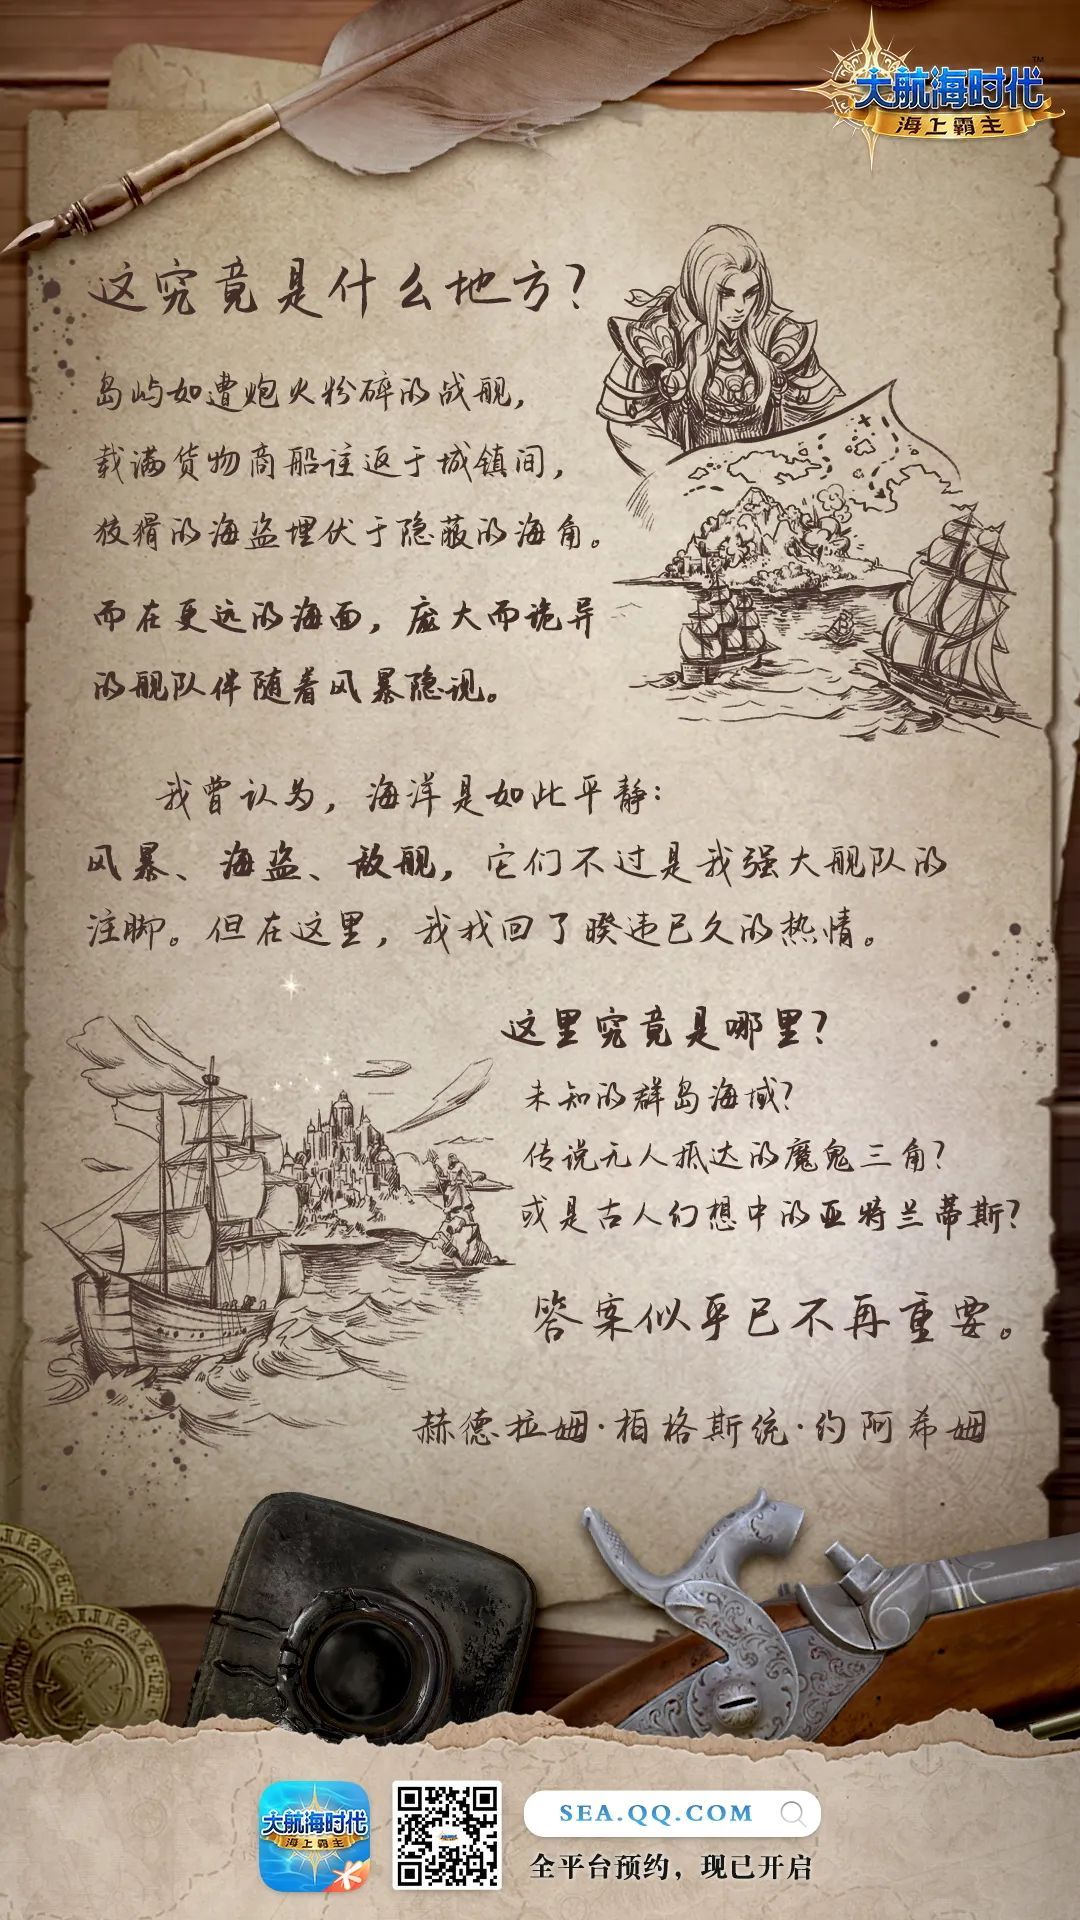 大航海时代™
海上霸主
这究竟是什么地方?
岛屿如遭炮火粉碎的战舰,
载满货物商船往返于城镇间,
狡猾的海盗埋伏于隐蔽的海角。
而在更远的海面,庞大而诡异
的舰队伴随着风暴隐现。
我曾认为,海洋是如此平静:
风暴、海盗、敌舰,它们不过是我强大舰队的
注脚。但在这里,我找回了暌违已久的热情。
这里究竟是哪里?
未知的群岛海域?
传说无人抵达的魔鬼三角?
或是古人幻想中的亚特兰蒂斯?
答案似乎已不再重要。
赫德拉姆·柏格斯统·约阿希姆
大航海时代
海上霸主
SEA.QQ.COM
全平台预约,现已开启